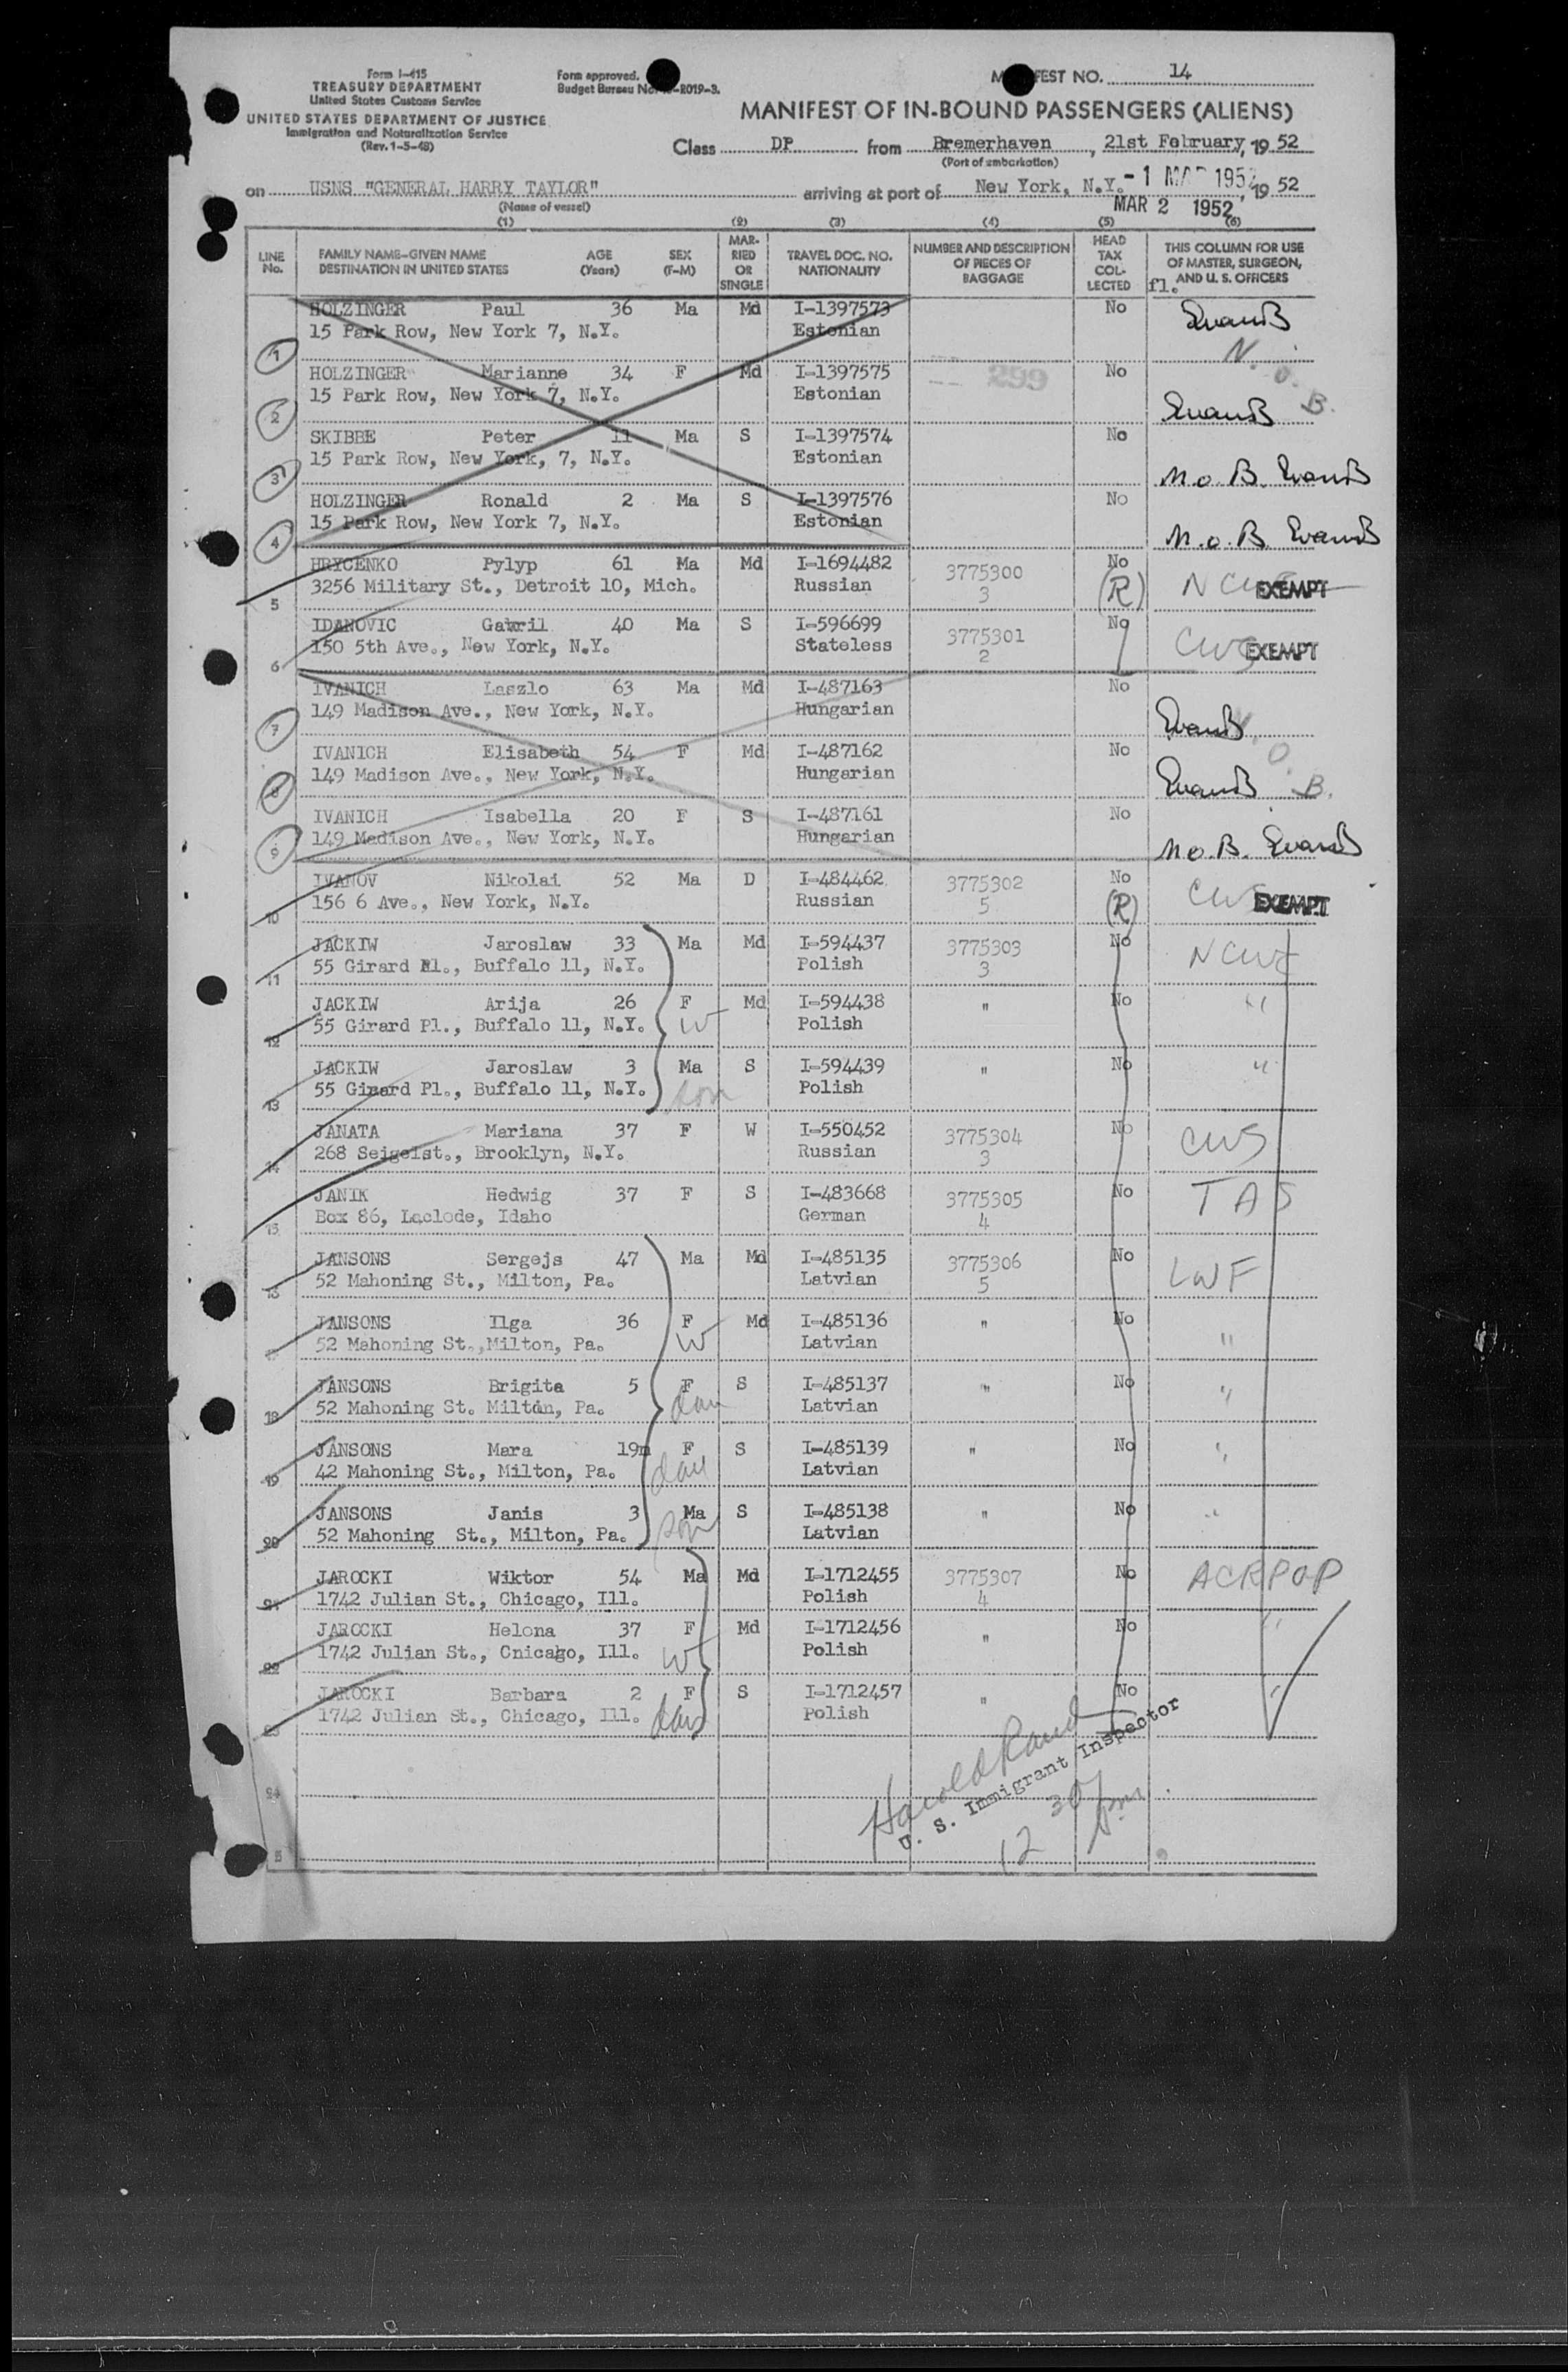 Form I-415
TREASURY DEPARTMENT
United States Customs Service
UNITED STATES DEPARTMENT OF JUSTICE
Immigration and Naturalization Service
(Rev. 1-5-48)
Form approved.
Budget Bureau No. -R019-3.
FEST NO. 14
MANIFEST OF IN-BOUND PASSENGERS (ALIENS)
Class DP from Bremerhaven, 21st February, 19 52
(Port of embarkation)
on USNS "GENERAL HARRY TAYLOR" arriving at port of New York, N.Y. -1 MAR 1952, 19 52
(Name of vessel)
MAR 2 1952
(1) (2) (3) (4) (5) (6)
LINE No. FAMILY NAME-GIVEN NAME DESTINATION IN UNITED STATES AGE (Years) SEX (F-M) MARRIED OR SINGLE TRAVEL DOC. NO. NATIONALITY NUMBER AND DESCRIPTION OF PIECES OF BAGGAGE HEAD TAX COLLECTED THIS COLUMN FOR USE OF MASTER, SURGEON, AND U. S. OFFICERS
fl.
HOLZINGER Paul 36 Ma Md I-1397573 No
1 15 Park Row, New York 7, N.Y. Estonian N.
HOLZINGER Marianne 34 F Md I-1397575 299 No O.
2 15 Park Row, New York 7, N.Y. Estonian B.
SKIBBE Peter 11 Ma S I-1397574 No
3 15 Park Row, New York, 7, N.Y. Estonian N.O.B.
HOLZINGER Ronald 2 Ma S I-1397576 No
4 15 Park Row, New York 7, N.Y. Estonian N.O.B.
HRYCENKO Pylyp 61 Ma Md I-1694482 3775300 No
5 3256 Military St., Detroit 10, Mich. Russian 3 (R) NCWC EXEMPT
IDANOVIC Gawril 40 Ma S I-596699 3775301 No
6 150 5th Ave., New York, N.Y. Stateless 2 CWS EXEMPT
IVANICH Laszlo 63 Ma Md I-487163 No
7 149 Madison Ave., New York, N.Y. Hungarian
IVANICH Elisabeth 54 F Md I-487162 No O.
8 149 Madison Ave., New York, N.Y. Hungarian B.
IVANICH Isabella 20 F S I-487161 No
9 149 Madison Ave., New York, N.Y. Hungarian N.O.B.
IVANOV Nikolai 52 Ma D I-484462 3775302 No
10 156 6 Ave., New York, N.Y. Russian 5 (R) CWS EXEMPT
JACKIW Jaroslaw 33 Ma Md I-594437 3775303 No NCWC
11 55 Girard Pl., Buffalo 11, N.Y. Polish 3
JACKIW Arija 26 F Md I-594438 " No "
12 55 Girard Pl., Buffalo 11, N.Y. W Polish
JACKIW Jaroslaw 3 Ma S I-594439 " No "
13 55 Girard Pl., Buffalo 11, N.Y. son Polish
JANATA Mariana 37 F W I-550452 3775304 No CWS
14 268 Seigelst., Brooklyn, N.Y. Russian 3
JANIK Hedwig 37 F S I-483668 3775305 No TAS
15 Box 86, Laclode, Idaho German 4
JANSONS Sergejs 47 Ma Md I-485135 3775306 No LWF
16 52 Mahoning St., Milton, Pa. Latvian 5
JANSONS Ilga 36 F Md I-485136 " No "
17 52 Mahoning St.,Milton, Pa. W Latvian
JANSONS Brigita 5 F S I-485137 " No "
18 52 Mahoning St. Milton, Pa. dau Latvian
JANSONS Mara 19m F S I-485139 " No "
19 42 Mahoning St., Milton, Pa. dau Latvian
JANSONS Janis 3 Ma S I-485138 " No "
20 52 Mahoning St., Milton, Pa. son Latvian
JAROCKI Wiktor 54 Ma Md I-1712455 3775307 No ACRPOP
21 1742 Julian St., Chicago, Ill. Polish 4
JAROCKI Helona 37 F Md I-1712456 " No "
22 1742 Julian St., Cnicago, Ill. W Polish
JAROCKI Barbara 2 F S I-1712457 " No "
23 1742 Julian St., Chicago, Ill. dau Polish
Harold Rand
U. S. Immigrant Inspector
24
12 30 pm